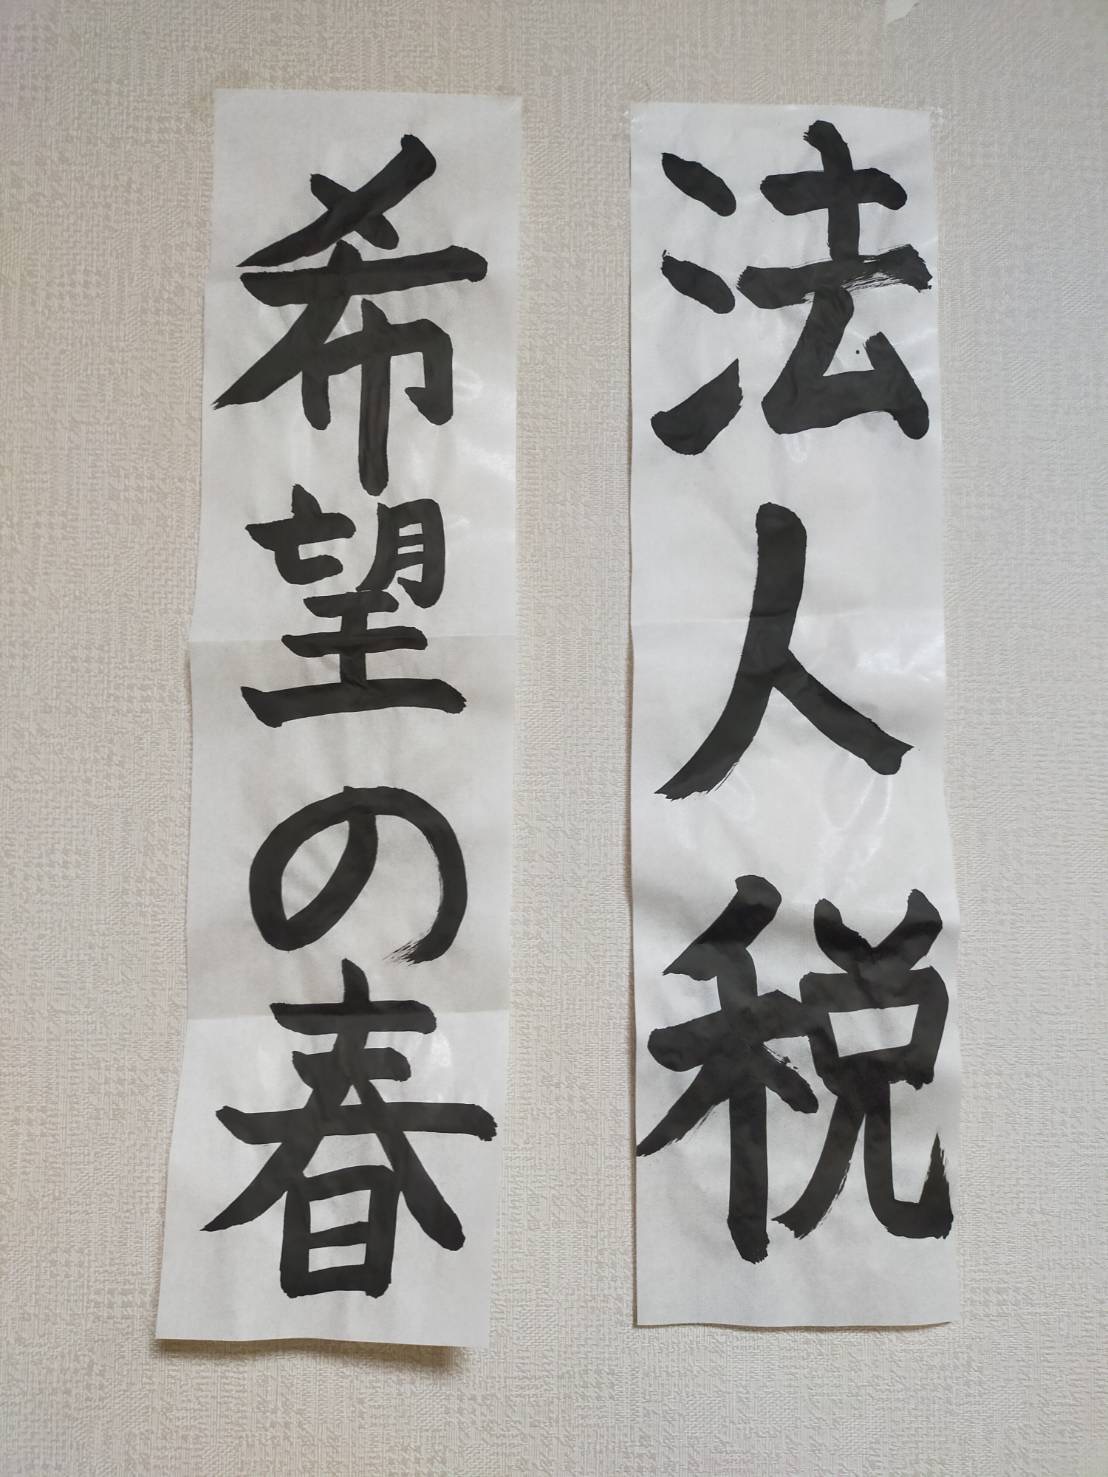 法人税
希望の春